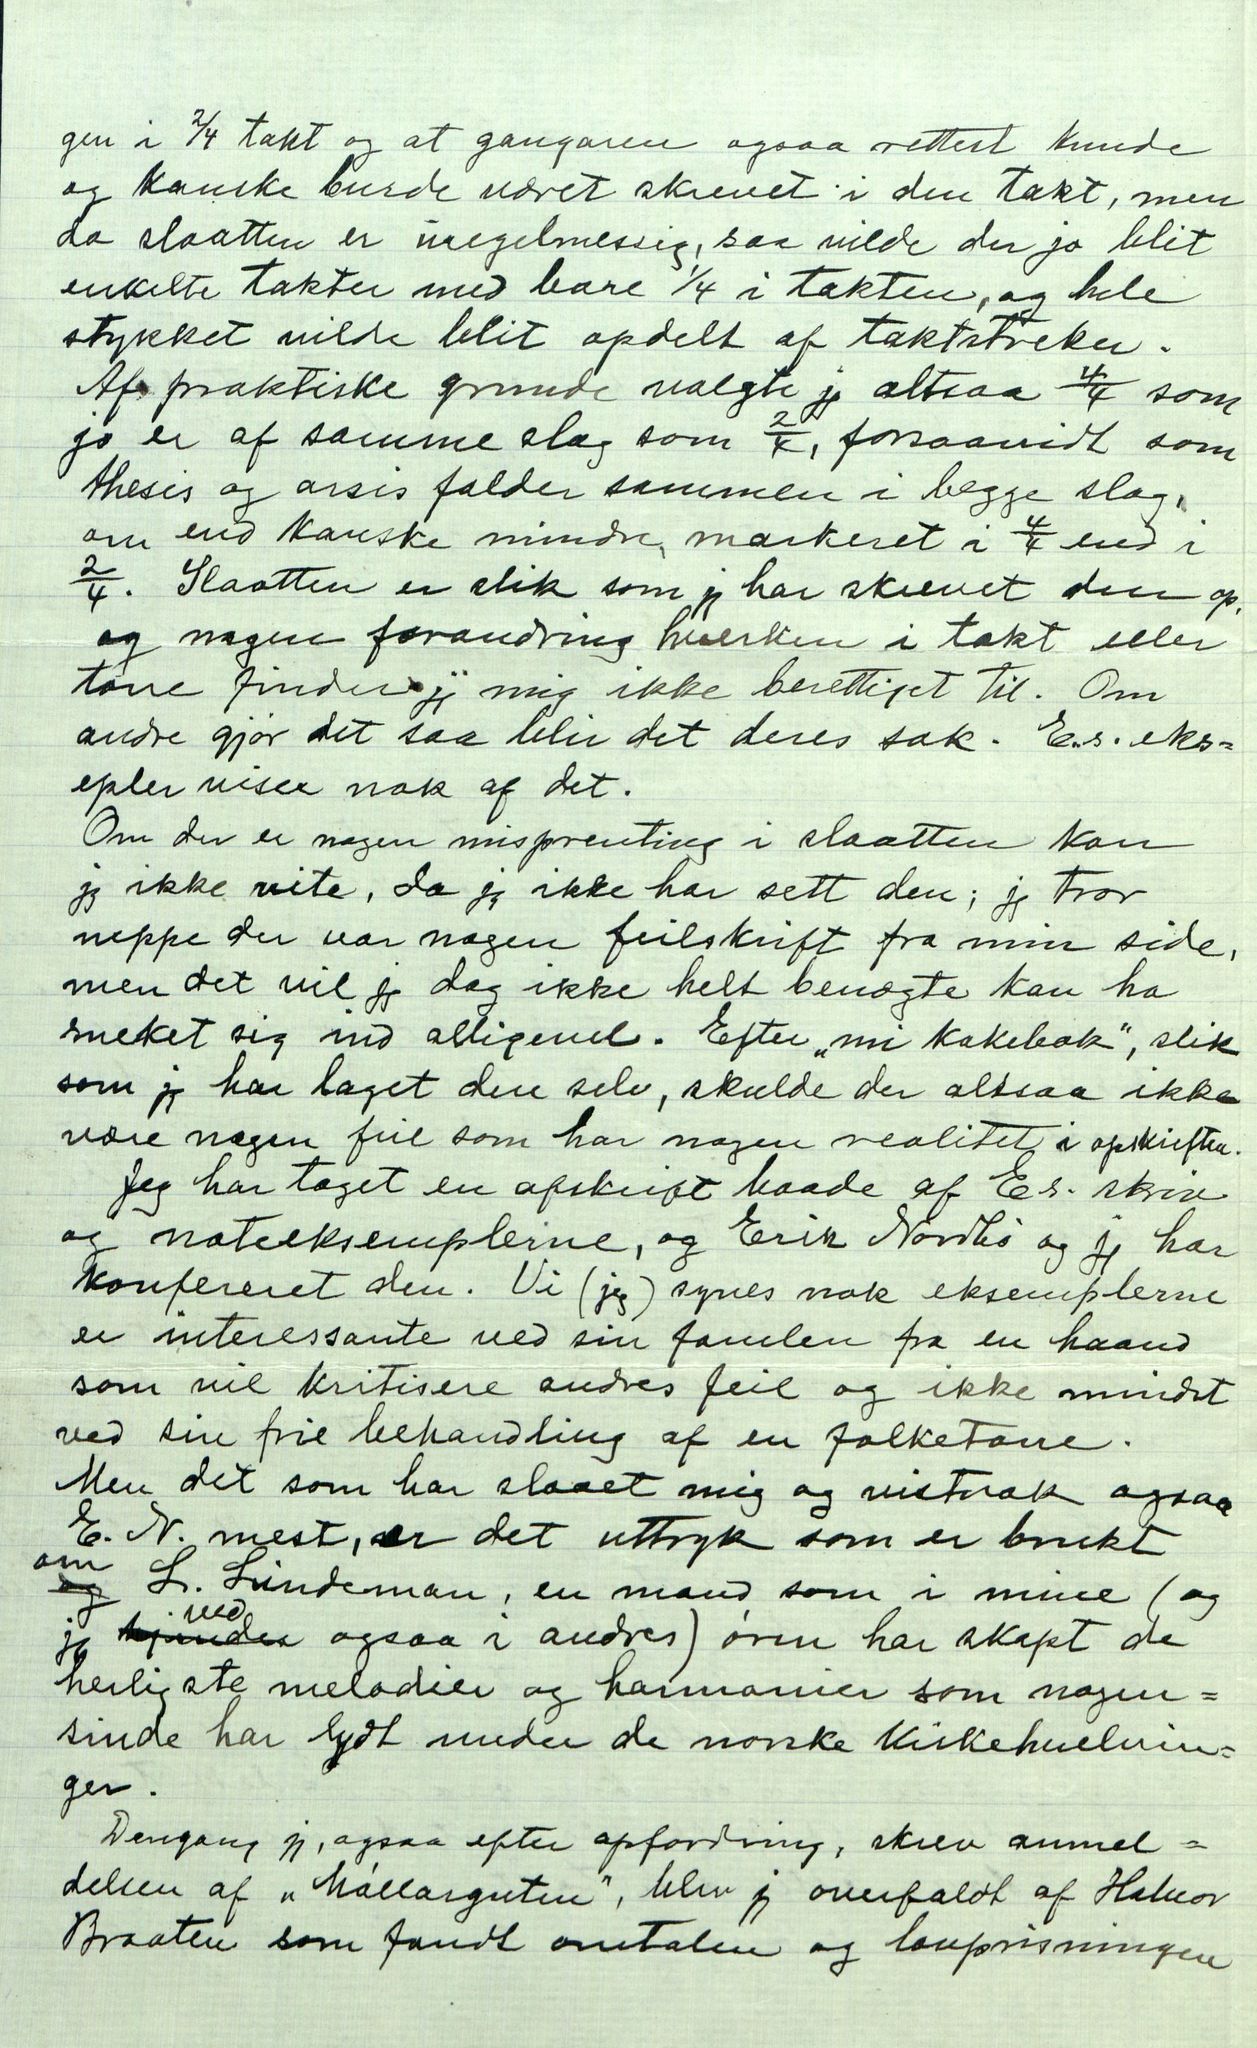 gen i 2/4 takt og at gangaren ogsaa rettest kunde
og kanske burde været skrevet i den takt, men
da slaatten er uregelmessig, saa vilde der jo blit
enkelte takter med bare 1/4 i takten, og hele
stykket vilde blit opdelt af taktstreker.
Af praktiske grunde valgte jeg altsaa 4/4 som
jo er af samme slag som 2/4, forsaavidt som
thesis og arsis falder sammen i begge slag,
om end kanske mindre markeret i 4/4 end i
2/4. Slaatten er slik som jeg har skrevet den op,
og nogen forandring hverken i takt eller
tone finder jeg mig ikke berettiget til. Om
andre gjør det saa blir det deres sak. E.s. eks=
epler viser nok af det.
Om der er nogen misprenting i slaatten kan
jeg ikke vite, da jeg ikke har sett den; jeg tror
neppe der var nogen feilskrift fra min side,
men det vil jeg dog ikke helt benægte kan ha
sneket sig ind alligevel. Efter „mi kokebok", slik
som jeg har laget den selv, skulde der altsaa ikke
være nogen feil som har nogen realitet i opskriften.
Jeg har taget en afskrift baade af E s. skriv
og noteeksemplerne, og Erik Nordbø og jeg har
konfereret den. Vi (jeg) synes nok eksemplerne
er interessante ved sin famlen fra en haand
som vil kritisere andres feil og ikke mindst
ved sin frie behandling af en folketone.
Men det som har slaaet mig og vistnok ogsaa
E. N. mest, er det uttryk som er brukt
om L. Lindeman, en mand som i mine (og
jeg ved ogsaa i andres) ören har skapt de
herligste melodier og harmonier som nogen=
sinde har lydt under de norske kirkehvelvin=
ger.
Dengang jeg, ogsaa efter opfordring, skrev anmel=
delsen af „Møllarguten", blev jeg overfaldt af Halvor
Braaten som fandt omtalen og lovprisningen